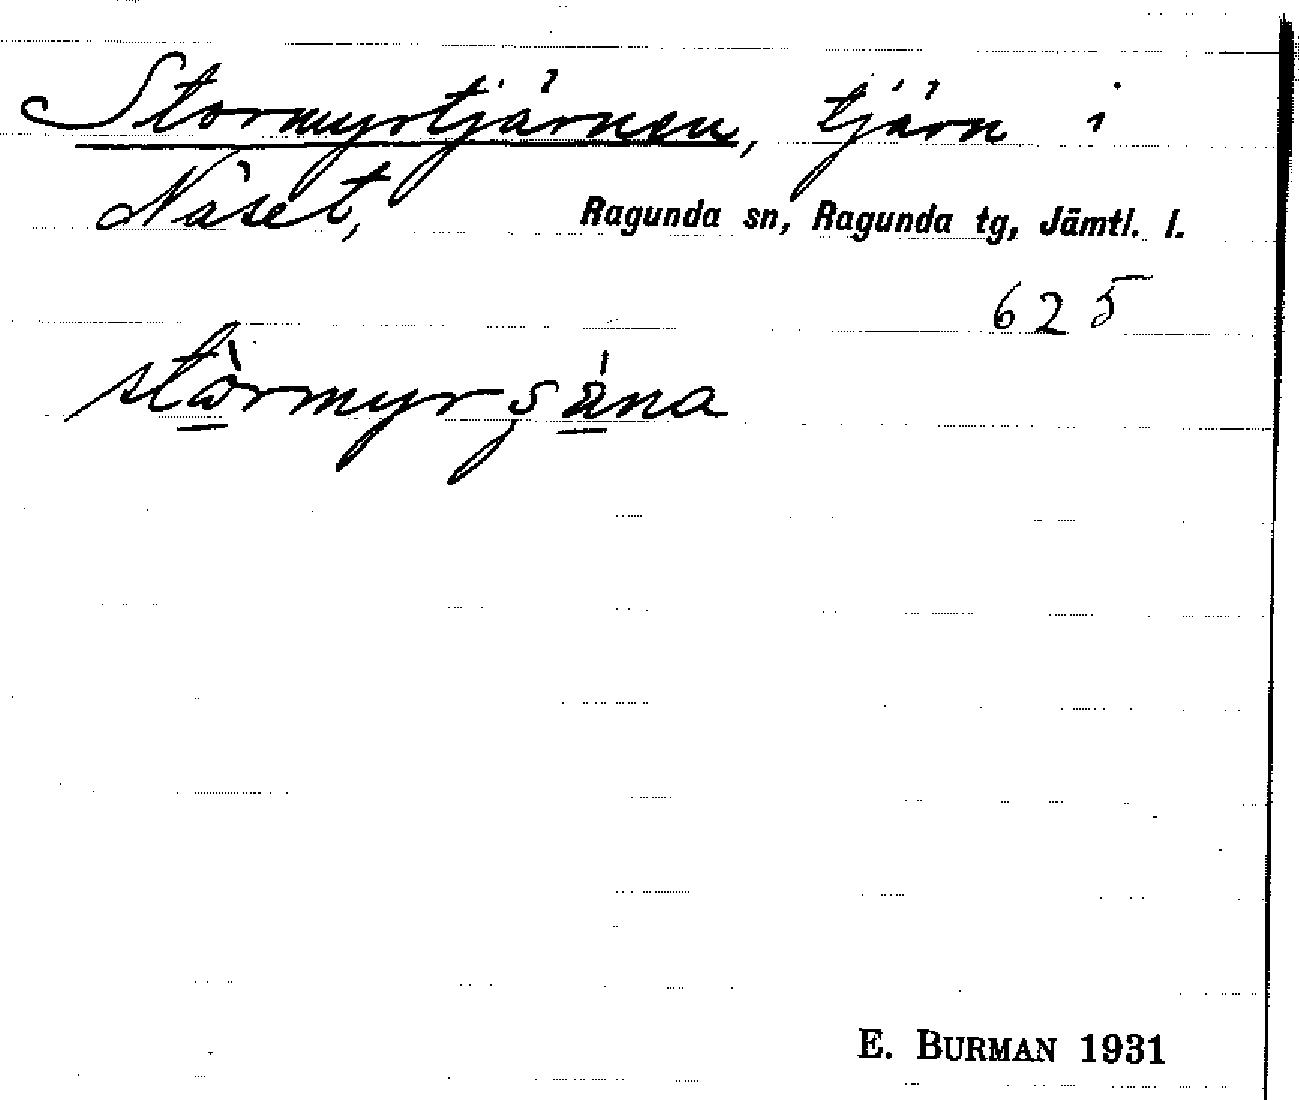 Stormyrtjärnen, tjärn i
Näset, Ragunda sn, Ragunda tg, Jämtl. l.
625
E. BURMAN 1931